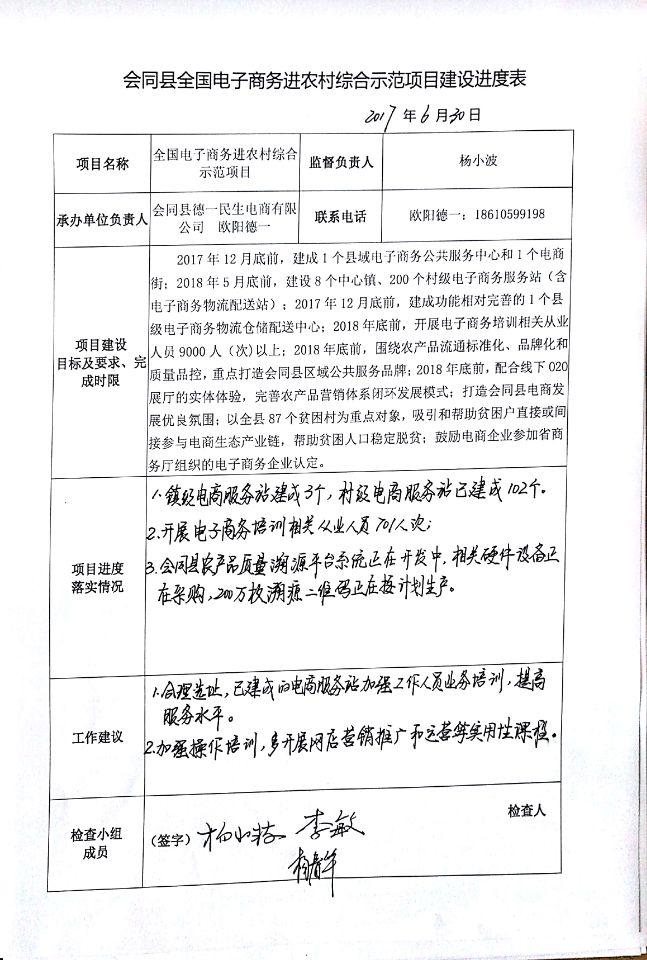 会同县全国电子商务进农村综合示范项目建设进度表
2017 年 6 月 30 日
项目名称
全国电子商务进农村综合
示范项目
监督负责人
杨小波
承办单位负责人
会同县德一民生电商有限
公司 欧阳德一
联系电话
欧阳德一：18610599198
项目建设
目标及要求、完
成时限
2017 年 12 月底前，建成 1 个县域电子商务公共服务中心和 1 个电商
街；2018 年 5 月底前，建设 8 个中心镇、200 个村级电子商务服务站（含
电子商务物流配送站）；2017 年 12 月底前，建成功能相对完善的 1 个县
级电子商务物流仓储配送中心；2018 年底前，开展电子商务培训相关从业
人员 9000 人（次)以上；2018 年底前，围绕农产品流通标准化、品牌化和
质量品控，重点打造会同县区域公共服务品牌；2018 年底前，配合线下 O2O
展厅的实体体验，完善农产品营销体系闭环发展模式；打造会同县电商发
展优良氛围；以全县 87 个贫困村为重点对象，吸引和帮助贫困户直接或间
接参与电商生态产业链，帮助贫困人口稳定脱贫；鼓励电商企业参加省商
务厅组织的电子商务企业认定。
项目进度
落实情况
1.镇级电商服务站建成3个，村级电商服务站已建成102个。
2.开展电子商务培训相关从业人员701人次；
3.会同县农产品质量溯源平台系统正在开发中，相关硬件设备正
在采购，200万枚溯源二维码正在按计划生产。
工作建议
1.合理选址，已建成的电商服务站加强工作人员业务培训，提高
服务水平。
2.加强操作培训，多开展网店营销推广和运营等实用性课程。
检查小组
成员
（签字） 李敏
检查人